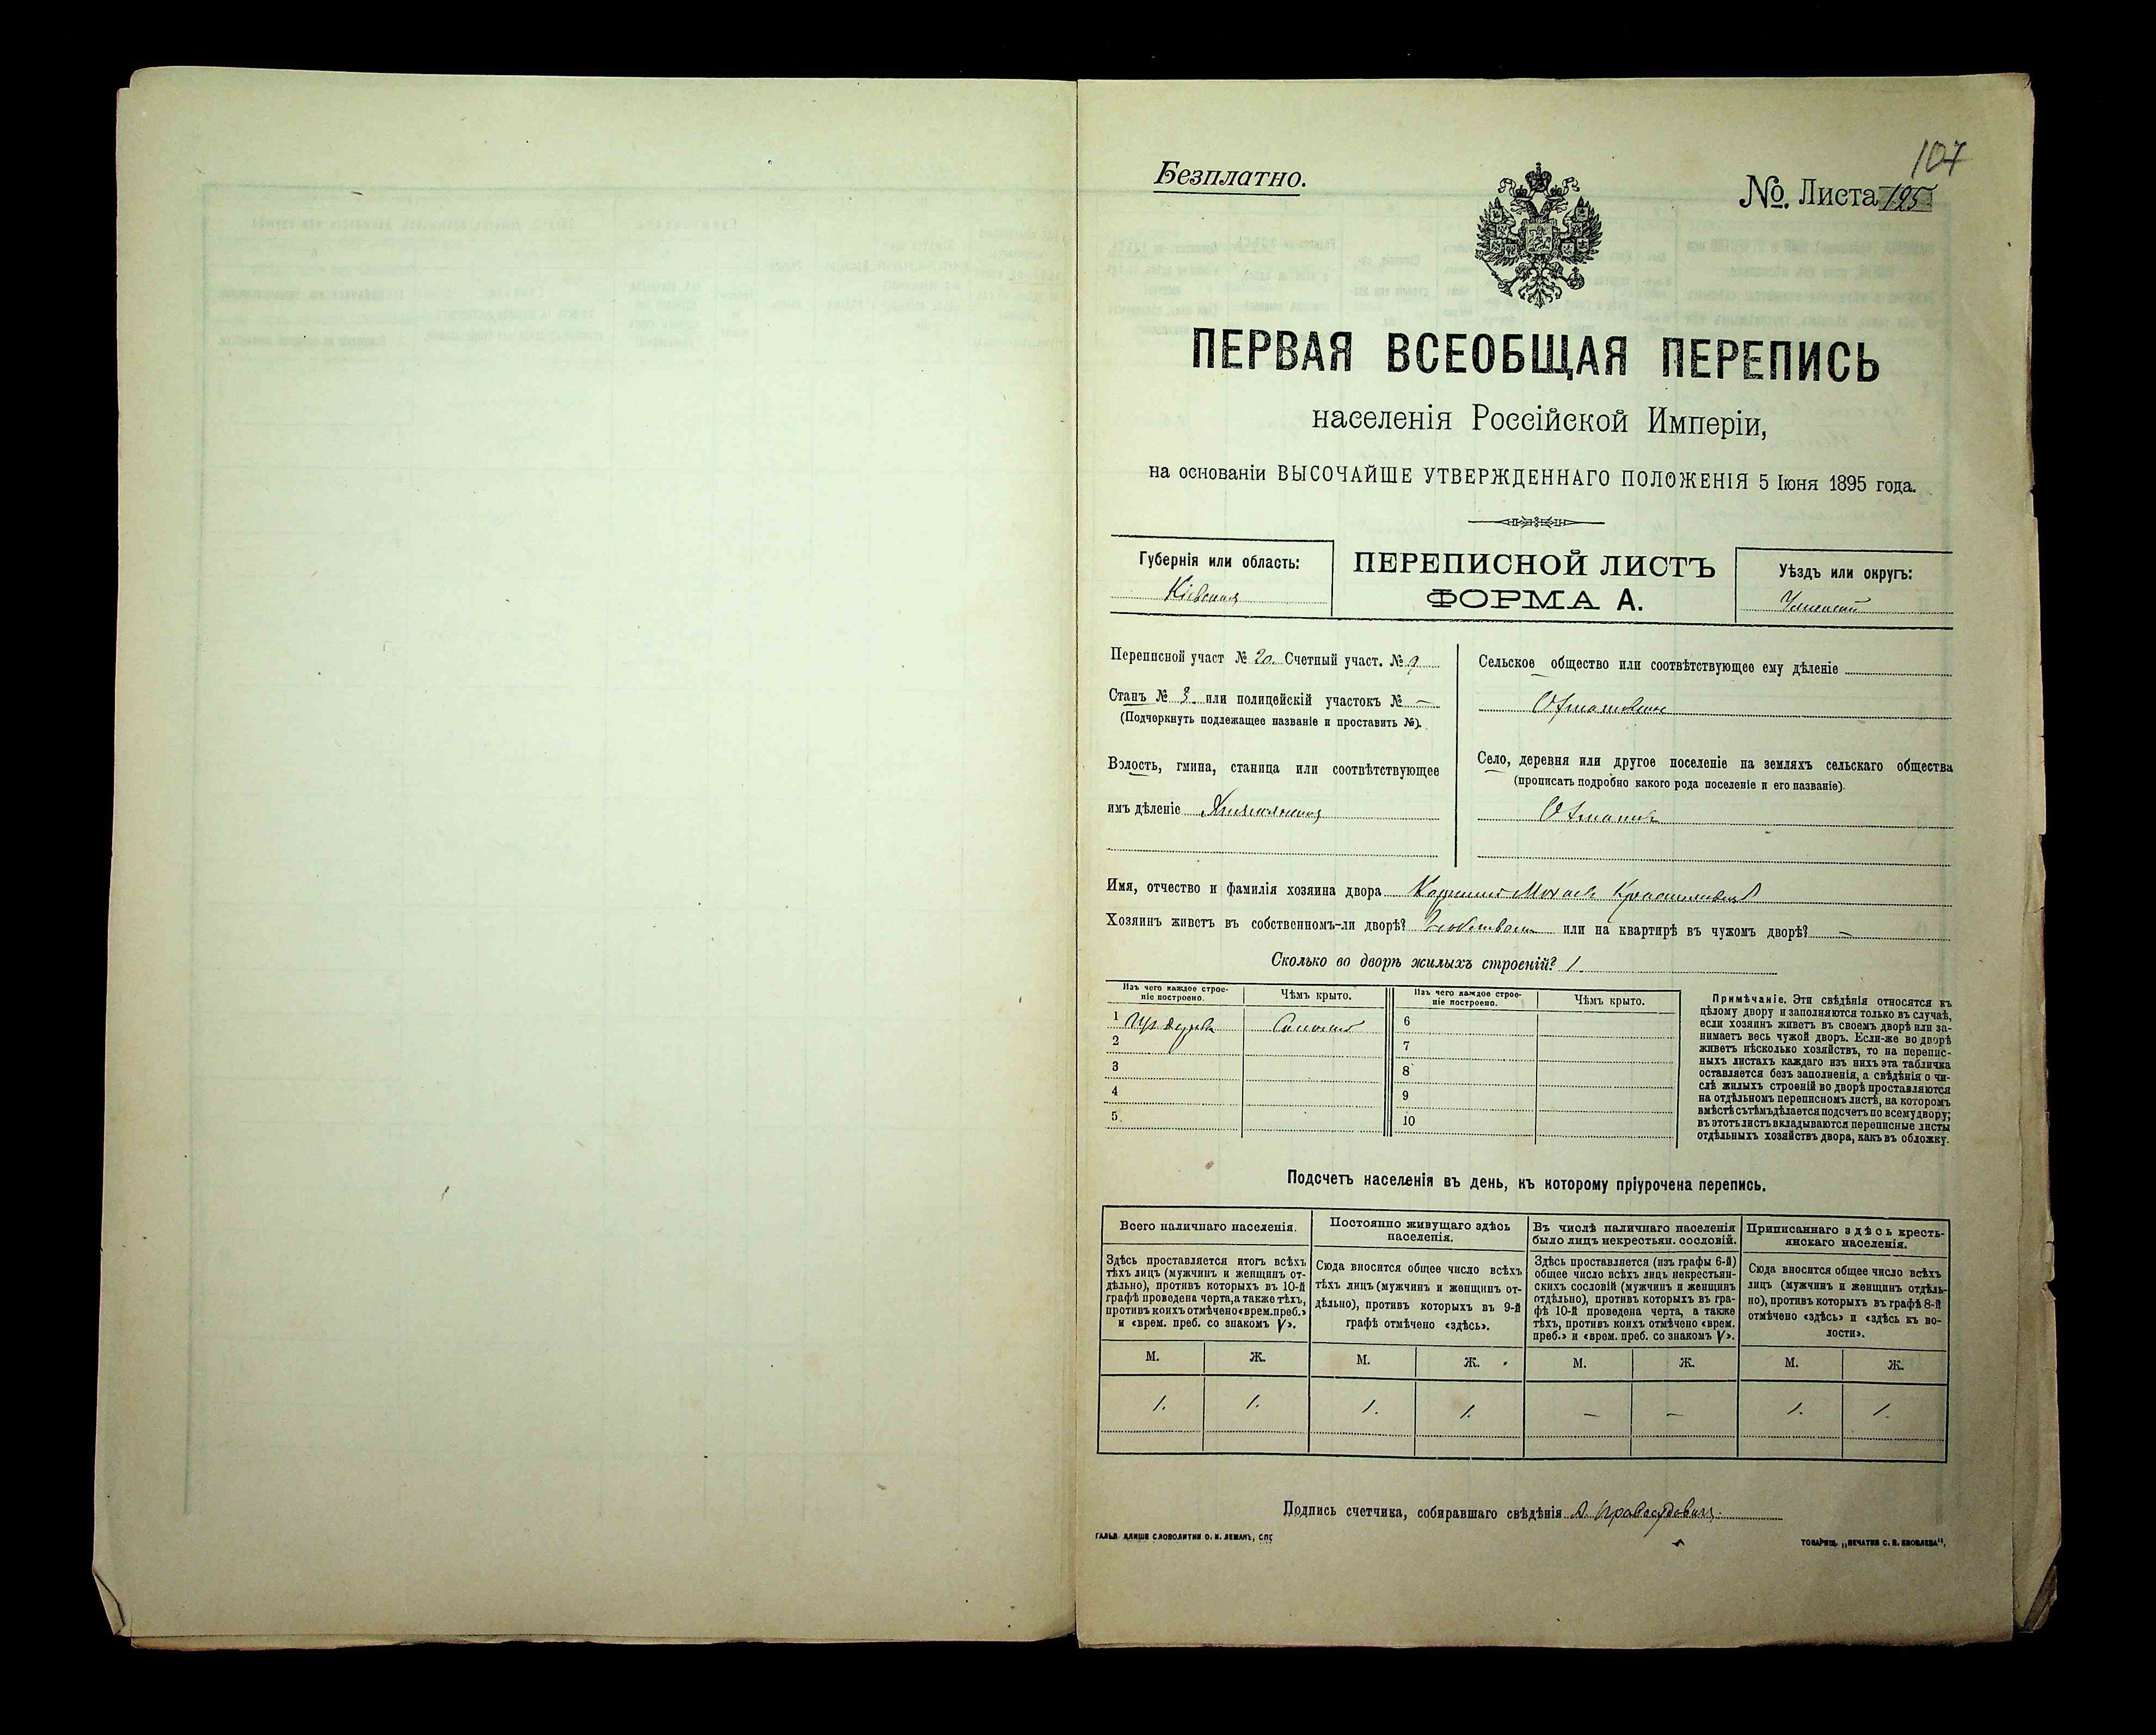 107
Безплатно.
№. Листа 125
ПЕРВАЯ ВСЕОБЩАЯ ПЕРЕПИСЬ
населенія Россійской Имперіи,
на основаніи ВЫСОЧАЙШЕ УТВЕРЖДЕННАГО ПОЛОЖЕНІЯ 5 Іюня 1895 года.
Губернія или область:
Кіевская
ПЕРЕПИСНОЙ ЛИСТЪ
ФОРМА А.
Уѣздъ или округъ:
Уманскій
Переписной участ № 20. Счетный участ. № 9
Станъ № 3 или полицейскій участокъ № —
(Подчеркнуть подлежащее названіе и проставить №).
Волость, гмина, станица или соотвѣтствующее
имъ дѣленіе
Сельское общество или соотвѣтствующее ему дѣленіе
Село, деревня или другое поселеніе на земляхъ сельскаго общества
(прописать подробно какого рода поселеніе и его названіе).
Имя, отчество и фамилія хозяина двора
Хозяинъ живетъ въ собственномъ-ли дворѣ? или на квартирѣ въ чужомъ дворѣ? —
Сколько во дворѣ жилыхъ строеній? 1
Изъ чего каждое строе-
ніе построено.
Чѣмъ крыто.
Изъ чего каждое строе-
ніе построено.
Чѣмъ крыто.
1 Изъ дерева Соломою 6
2 7
3 8
4 9
5 10
Примѣчаніе. Эти свѣдѣнія относятся къ
цѣлому двору и заполняются только въ случаѣ,
если хозяинъ живетъ въ своемъ дворѣ или за-
нимаетъ весь чужой дворъ. Если-же во дворѣ
живетъ нѣсколько хозяйствъ, то на перепис-
ныхъ листахъ каждаго изъ нихъ эта табличка
оставляется безъ заполненія, а свѣдѣнія о чи-
слѣ жилыхъ строеній во дворѣ проставляются
на отдѣльномъ переписномъ листѣ, на которомъ
вмѣстѣ съ тѣмъ дѣлается подсчетъ по всему двору;
въ этотъ листъ вкладываются переписные листы
отдѣльныхъ хозяйствъ двора, какъ въ обложку.
Подсчетъ населенія въ день, къ которому пріурочена перепись.
Всего наличнаго населенія.
Здѣсь проставляется итогъ всѣхъ
тѣхъ лицъ (мужчинъ и женщинъ от-
дѣльно), противъ которыхъ въ 10-й
графѣ проведена черта, а также тѣхъ,
противъ коихъ отмѣчено «врем. преб.»
и «врем. преб. со знакомъ V».
Постоянно живущаго здѣсь
населенія.
Сюда вносится общее число всѣхъ
тѣхъ лицъ (мужчинъ и женщинъ от-
дѣльно), противъ которыхъ въ 9-й
графѣ отмѣчено «здѣсь».
Въ числѣ наличнаго населенія
было лицъ некрестьян. сословій.
Здѣсь проставляется (изъ графы 6-й)
общее число всѣхъ лицъ некрестьян-
скихъ сословій (мужчинъ и женщинъ
отдѣльно), противъ которыхъ въ гра-
фѣ 10-й проведена черта, а также
тѣхъ, противъ коихъ отмѣчено «врем.
преб.» и «врем. преб. со знакомъ V».
Приписаннаго здѣсь кресть-
янскаго населенія.
Сюда вносится общее число всѣхъ
лицъ (мужчинъ и женщинъ отдѣль-
но), противъ которыхъ въ графѣ 8-й
отмѣчено «здѣсь» и «здѣсь къ во-
лости».
М. Ж. М. Ж. М. Ж. М. Ж.
1. 1. 1. 1. — — 1. 1.
Подпись счетчика, собиравшаго свѣдѣнія
ГАЛЬВ. КЛИШЕ СЛОВОЛИТНИ О. И. ЛЕМАНЪ, СПБ
ТОВАРИЩ. „ПЕЧАТНЯ С. П. ЯКОВЛЕВА".